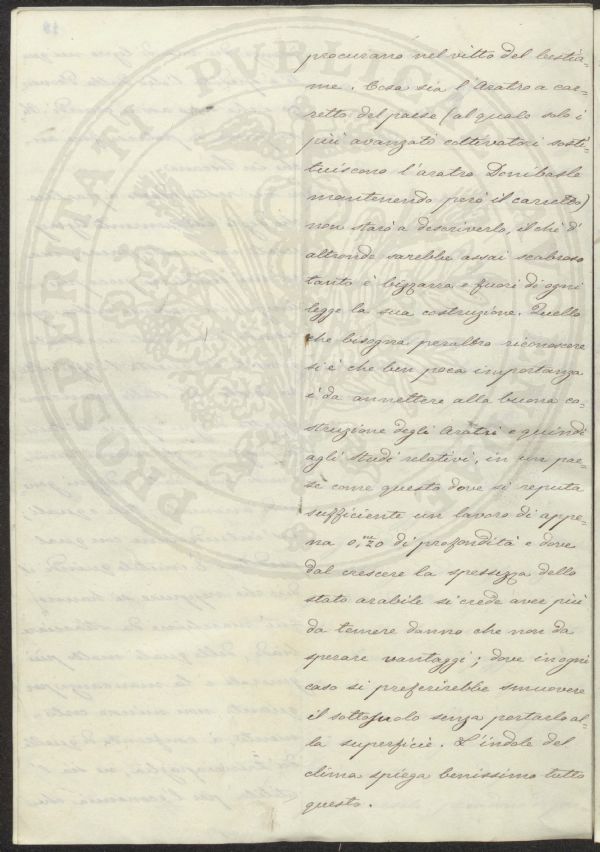 procurano nel vitto del bestia=
me. Cosa sia l'Aratro a car=
retto del paese (al quale solo i
più avanzati coltivatori sosti=
tuiscono l'aratro Dombasle
mantenendo però il carretto)
non starò a descriverlo, il chè d'
altronde sarebbe assai scabroso
tanto è bizzarra e fuori di ogni
legge la sua costruzione. Quello
che bisogna peraltro riconoscere
si è che ben poca importanza
è da annettere alla buona co=
struzione degli Aratri e quindi
agli studi relativi, in un pae=
se come questo dove si reputa
sufficiente un lavoro di appe=
na 0,m20 di profondità e dove
dal crescere la spessezza dello
stato arabile si crede aver più
da temere danno che non da
sperare vantaggi; dove in ogni
caso si preferirebbe smuovere
il sottosuolo senza portarlo al=
la superficie. L'indole del
clima spiega benissimo tutto
questo.
PROSPERITATI PVBLICAE